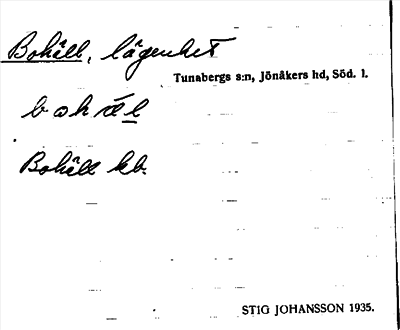 Bohäll, lägenhet
Tunabergs s:n, Jönåkers hd, Söd. l.
Bohäll kb.
STIG JOHANSSON 1935.